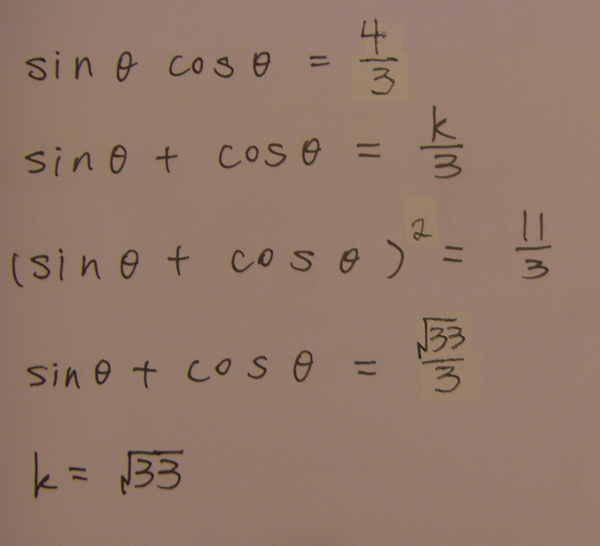 sin θ cos θ = 4/3
sin θ + cos θ = k/3
(sin θ + cos θ)² = 11/3
sin θ + cos θ = √33/3
k = √33